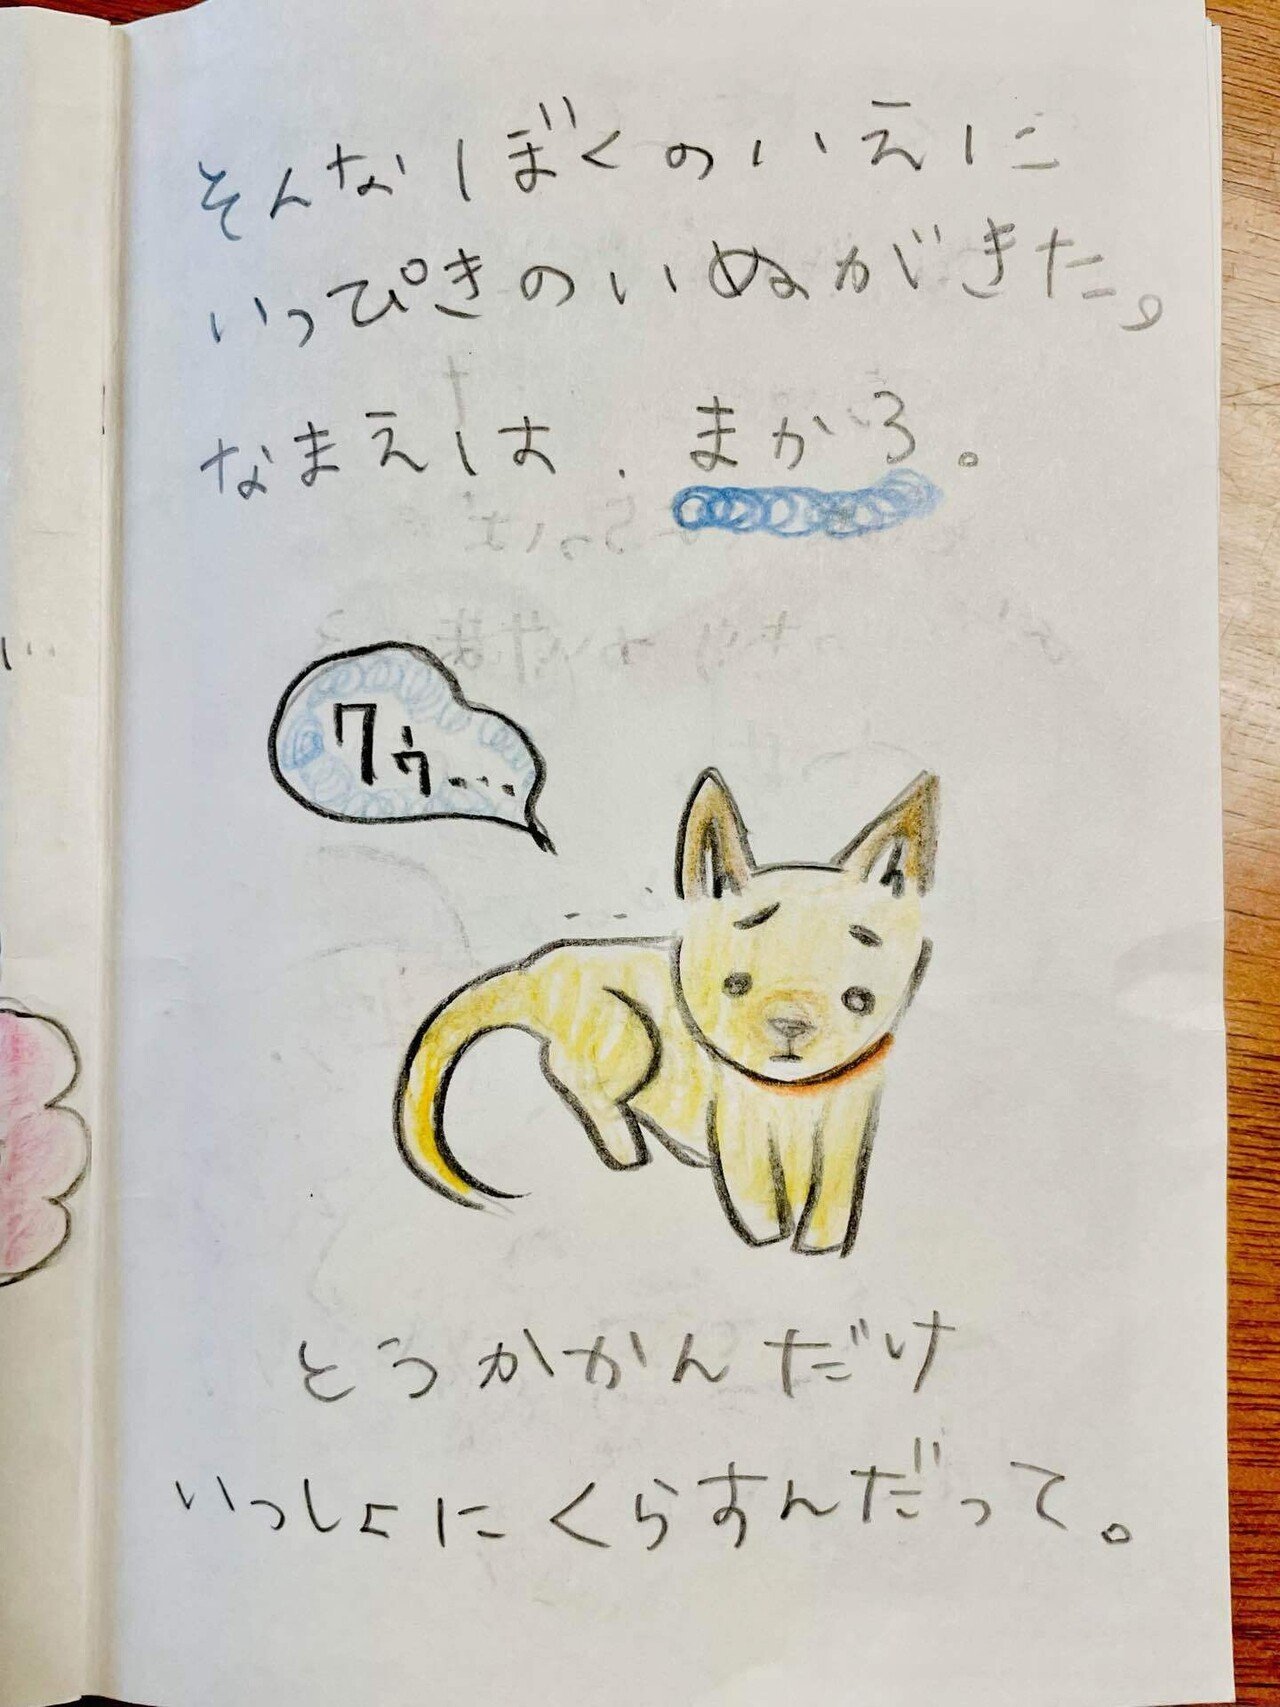 そんなぼくのいえに
いっぴきのいぬがきた。
なまえは、まかろ。
クゥ...
とうかかんだけ
いっしょにくらすんだって。